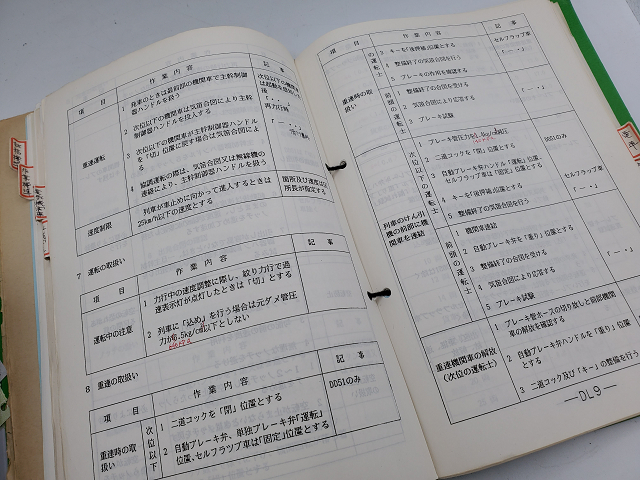 項 目
作 業 内 容
記 事
重連運転
1 発車のときは最前部の機関車で主幹制御
器ハンドルを扱う
次位以下の機関車
2 次位以下の機関車は気笛合図により主幹
制御器ハンドルを投入する
再力行時
3 次位以下の機関車が主幹制御器ハンドル
を「切」位置に戻す場合は気笛合図によ
る
4 協調運転の際は、気笛合図又は無線機の
連絡により、主幹制御器ハンドルを扱う
速度制限
列車が車止めに向かって進入するときは
25km/h以下の速度とする
箇所及び速度は
所長が指定する
7 運転の取扱い
項 目
作 業 内 容
記 事
運転中の注意
1 力行中の速度調整に際し、絞り力行で過
速表示灯が点灯したときは「切」とする
2 列車に「込め」を行う場合は元ダメ管圧
力が6.5kg/cm²以下としない
8 重連の取扱い
項 目
作 業 内 容
記 事
重連時の取
扱い
次位以下
1 二道コックを「閉」位置とする
DD51のみ
2 自動ブレーキ弁、単独ブレーキ弁「運転」
位置、セルフラップ車は「固定」位置とする
項 目
作 業 内 容
記 事
重連時の取
扱い
の運転士
3 キーを「後押補」位置とする
セルフラップ車
4 整備終了の気笛合図を行う
「― ・」
5 ブレーキの作用を確認する
前頭の運転士
1 整備終了の合図を受ける
2 気笛合図により応答する
「― ・」
3 ブレーキ試験
列車のけん引
機の前部に機
関車を連結
次位以下の運転士
1 ブレーキ管圧力を
2 二道コックを「閉」位置とする
DD51のみ
3 自動ブレーキ弁ハンドル「運転」位置、
セルフラップ車は「固定」位置とする
4 キーを「後押補」位置とする
セルフラップ車
5 整備終了の気笛合図を行う
「― ・」
前頭の運転士
1 機関車連結
2 自動ブレーキ弁を「重り」位置とする
3 整備終了の合図を受ける
4 気笛合図により応答する
「― ・」
5 ブレーキ試験
重連機関車の解放
(次位の運転士)
1 ブレーキ管ホースの切り放しと前部機関
車の解放を確認する
2 自動ブレーキ弁ハンドルを「重り」位置
とする
3 二道コック及び「キー」の整備を行う
―DL9―